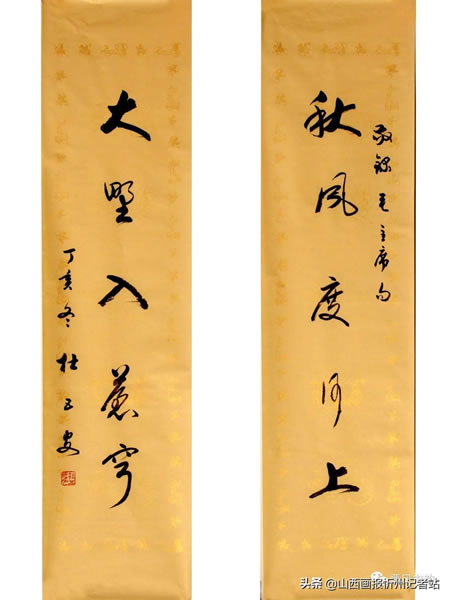 秋风度河上
敬録毛主席句
大野入蒼穹
丁亥冬杜五安
头条 @山西画报忻州记者站